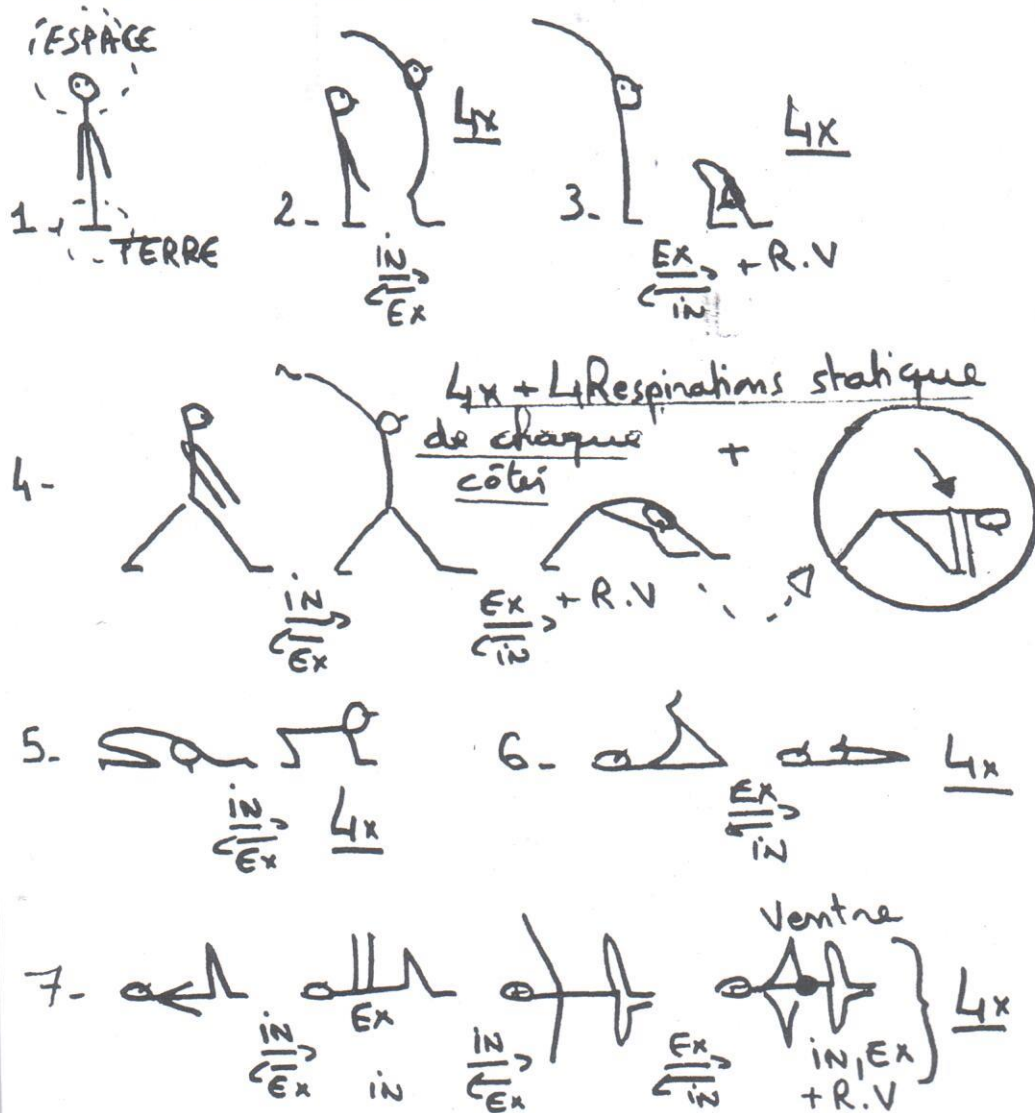 ESPACE
1. TERRE
2- 4x
in
Ex
3- 4x
Ex + R.V
in
4x + 4 Respirations statique
de chaque +
côtés
4-
in
Ex
Ex + R.V
in
5-
in
Ex
4x
6- 4x
Ex
in
7- Ventre
4x
in
Ex
Ex
in
in
Ex
Ex
in
in, Ex
+ R.V